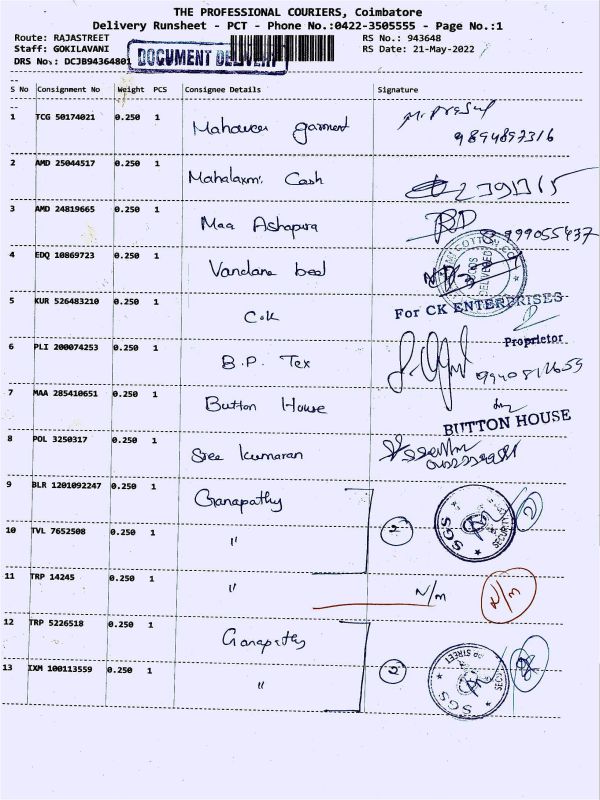 THE PROFESSIONAL COURIERS, Coimbatore
Delivery Runsheet - PCT - Phone No.:0422-3505555 - Page No.:1
Route: RAJASTREET RS No.: 943648
Staff: GOKILAVANI RS Date: 21-May-2022
DRS No.: DCJB94364801
DOCUMENT DELIVERY
S No Consignment No Weight PCS Consignee Details Signature
1 TCG 50174021 0.250 1 Mahaveer garment
9894897316
2 AMD 25044517 0.250 1 Mahalaxmi Cash
3 AMD 24819665 0.250 1 Maa Ashapura
4 EDQ 10869723 0.250 1 Vandana bed
COTTON
DELIVERED
5 KUR 526483210 0.250 1 C.K
For CK ENTERPRISES
Proprietor
6 PLI 200074253 0.250 1 B.P. Tex
7 MAA 285410651 0.250 1 Button House
BUTTON HOUSE
8 POL 3250317 0.250 1 Sree kumaran
9 BLR 1201092247 0.250 1 Ganapathy
SGS SECURITY
10 TVL 7652508 0.250 1 "
11 TRP 14245 0.250 1 " N/m N/m
12 TRP 5226518 0.250 1 Ganapathy
13 IXM 100113559 0.250 1 "
SGS